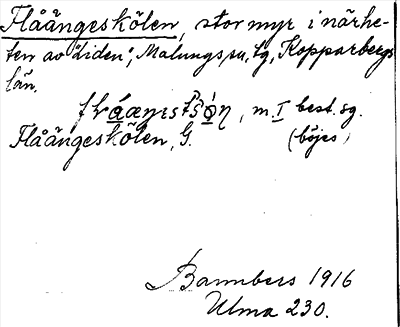 Flåängeskölen, stor myr i närhe-
ten av "Liden", Malungs sn, Kopparbergs
län.
m. I best. sg.
Flåängeskölen, G. (böjes)
Bannbers 1916
Ulma 230.